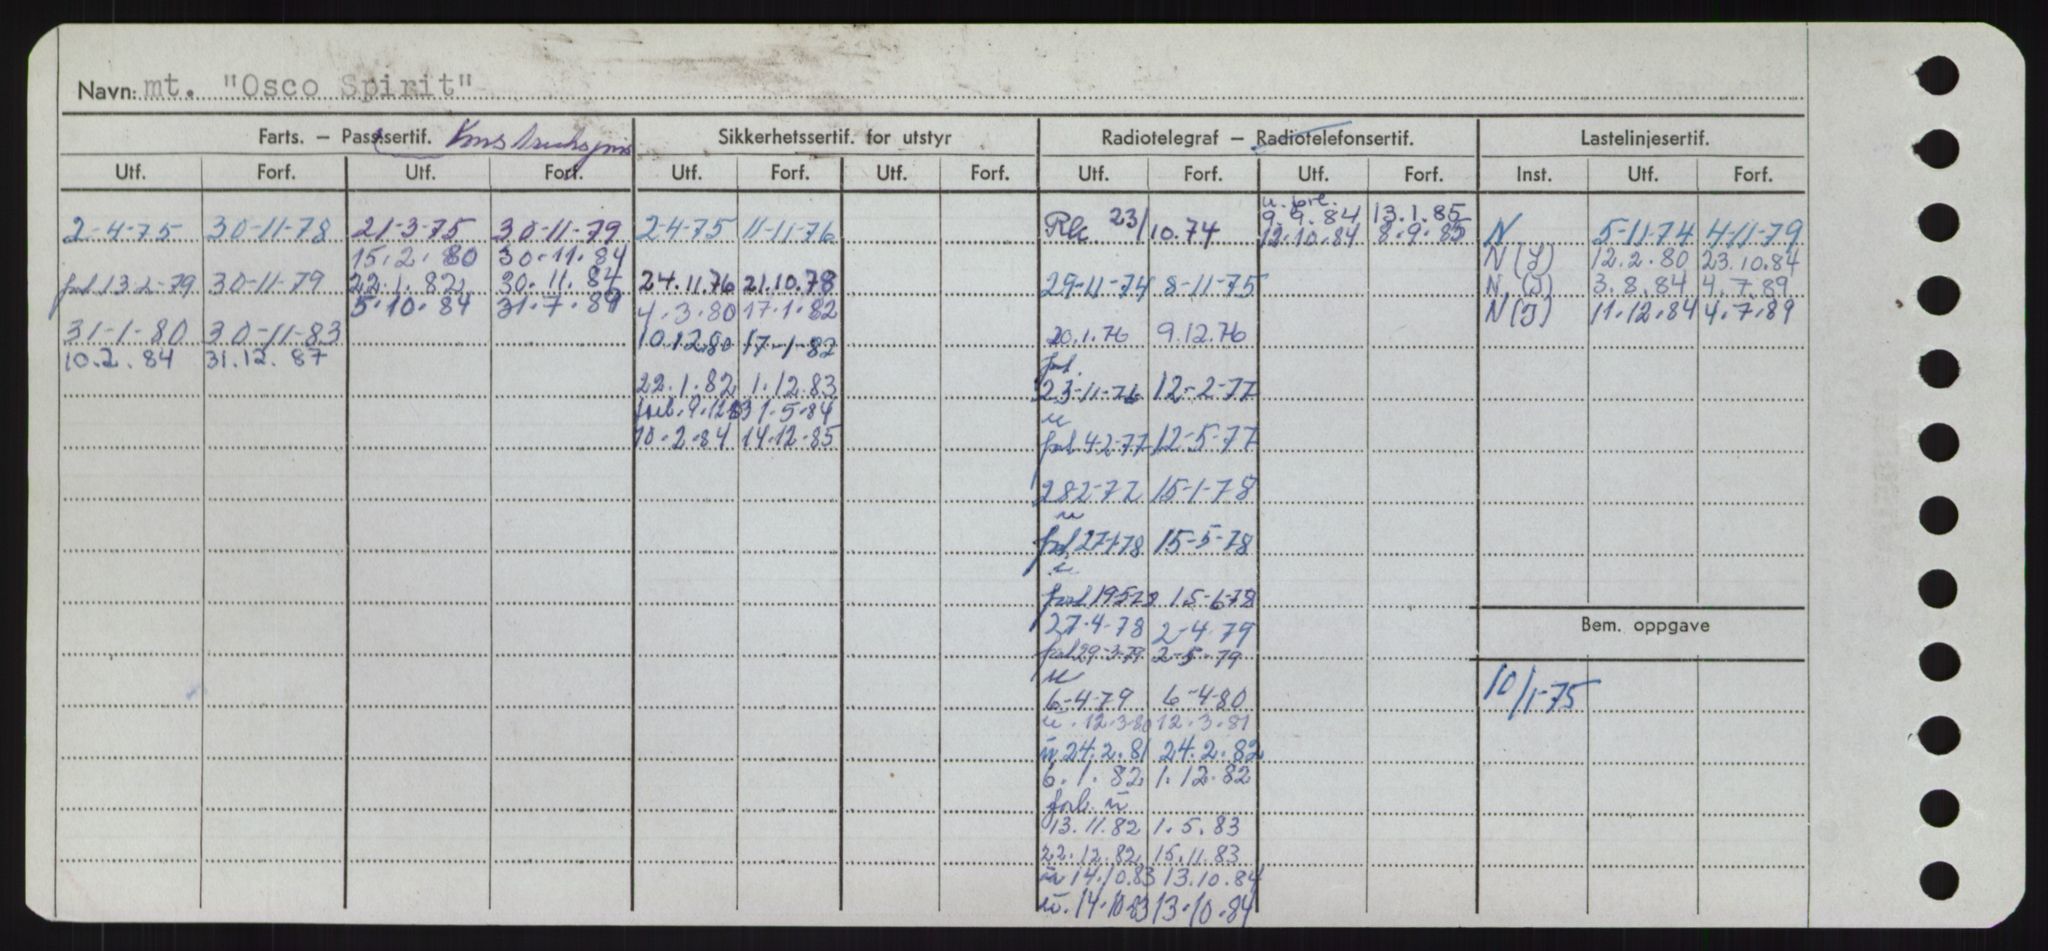 Navn: mt. "Osco Spirit"
Farts. – Passsertif. Konstruksjons
Sikkerhetssertif. for utstyr
Radiotelegraf – Radiotelefonsertif.
Lastelinjesertif.
Utf. Forf. Utf. Forf. Utf. Forf. Utf. Forf. Utf. Forf. Utf. Forf. Inst. Utf. Forf.
2-4-75 30-11-78
forl 13-2-79 30-11-79
31-1-80 30-11-83
10.2.84 31.12.87
21-3-75 30-11-79
15.2.80 30.11.84
22.1.82 30.11.84
5.10.84 31.7.89
2-4-75 11-11-76
24.11.76 21.10.78
4.3.80 17.1.82
10.12.80 17-1-82
22.1.82 1.12.83
forl. 9.12.83 1.5.84
10.2.84 14.12.85
23/10.74
29-11-74 8-11-75
20.1.76 9.12.76
forl.
23-11-76 12-2-77
u
forl 4-2-77 12-5-77
28-2-77 15-1-78
u
forl 27-1-78 15-5-78
u
forl 19-5-78 15-6-78
27-4-78 2-4-79
forl 29-3-79 2-5-79
u
6-4-79 6-4-80
u. 12.3.80 12.3.81
u 24.2.81 24.2.82
6.1.82 1.12.82
forl. u
13.11.82 1.5.83
22.12.82 15.11.83
u 14.10.83 13.10.84
u. 14.10.83 13.10.84
9.9.84 13.1.85
12.10.84 8.9.85
N 5-11-74 4-11-79
N(J) 12.2.80 23.10.84
N (J) 3.8.84 4.7.89
N(J) 11.12.84 4.7.89
Bem. oppgave
10/1-75